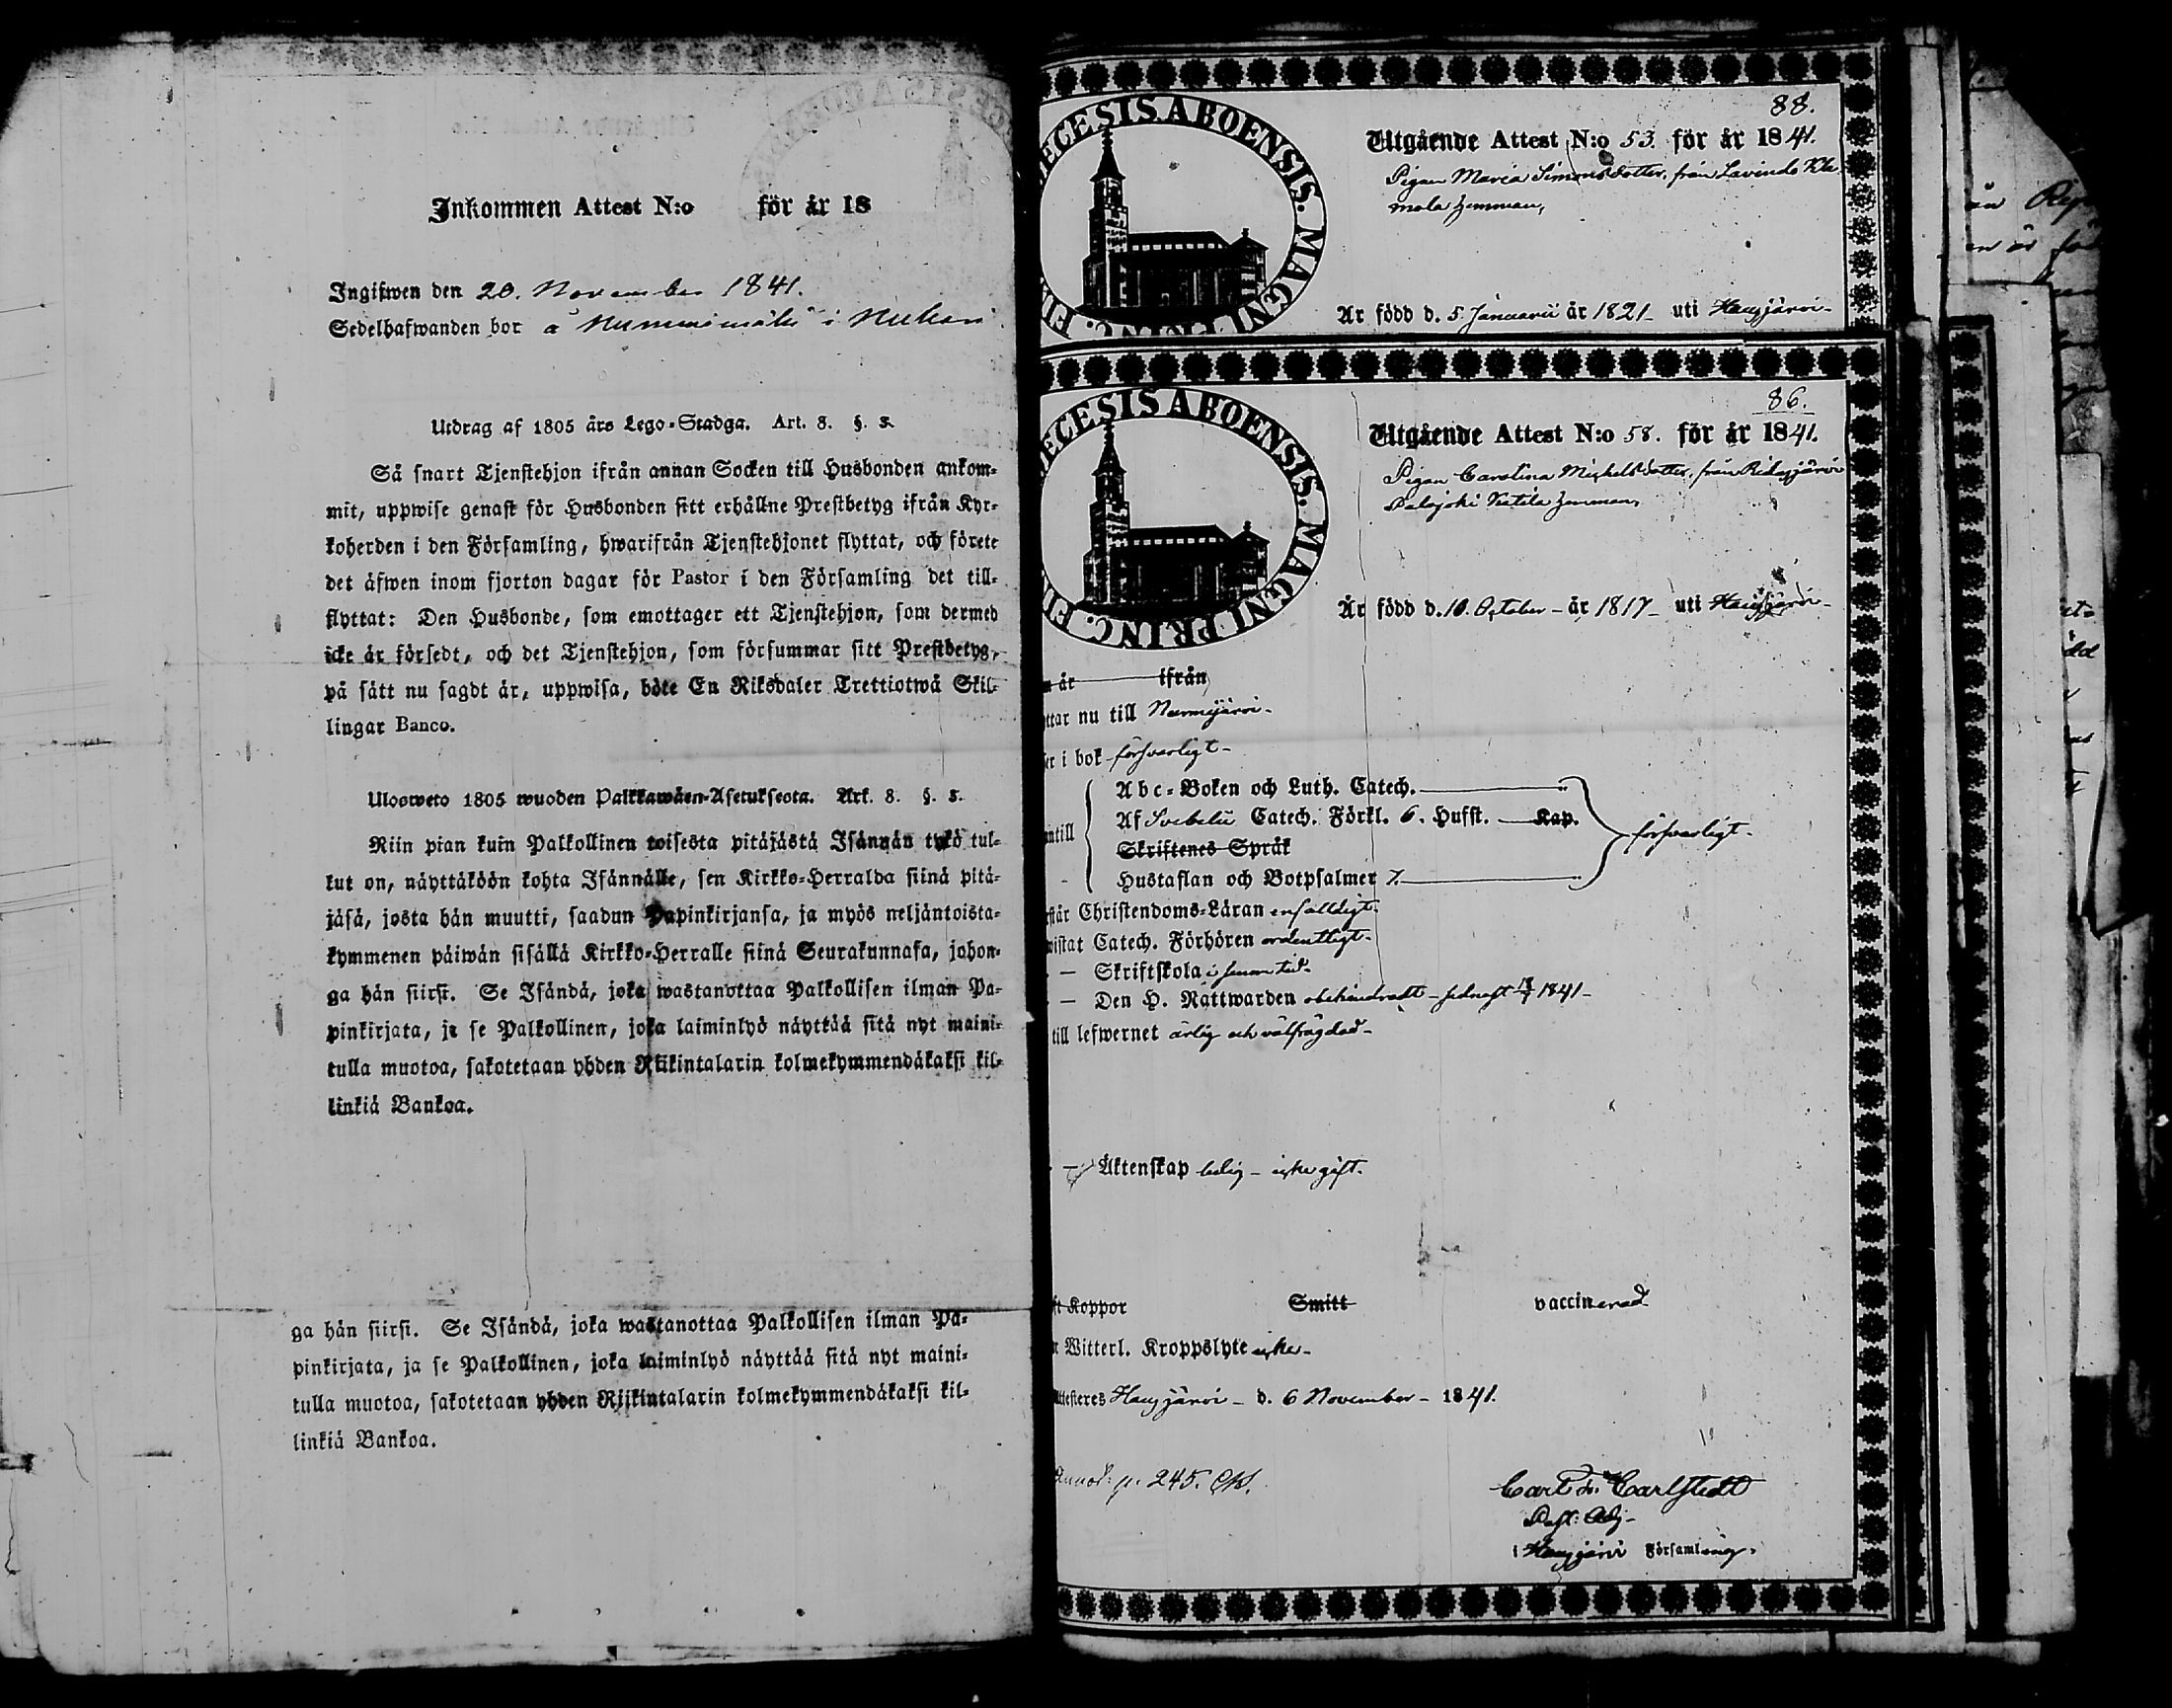 Inkommen Attest N:o för år 18
Ingifwen den 20. November 1841.
Sedelhafwanden bor å Nummimäki i
Utdrag af 1805 års Lego-Stadga. Art. 8. §. 3.
Så snart Tjenstehjon ifrån annan Socken till Husbonden ankom-
mit, uppwise genast för Husbonden sitt erhållne Prestbetyg ifrån Kyr-
koherden i den Församling, hwarifrån Tjenstehjonet flyttat, och förete
det äfwen inom fjorton dagar för Pastor i den Församling det till-
flyttat: Den Husbonde, som emottager ett Tjenstehjon, som dermed
icke är försedt, och det Tjenstehjon, som försummar sitt Prestbetyg,
på sätt nu sagdt är, uppwisa, böte En Riksdaler Trettiotwå Skil-
lingar Banco.
Ulosweto 1805 wuoden Palkkawäen-Asetuksesta. Art. 8. §. 3.
Niin pian kuin Palkollinen toisesta pitäjästä Isännän tykö tul-
kut on, näyttäköön kohta Isännälle, sen Kirkko-Herralda siinä pitä-
jäsä, josta hän muutti, saadun Papinkirjansa, ja myös neljäntoista-
kymmenen päiwän sisällä Kirkko-Herralle siinä Seurakunnasa, johon-
ga hän siirsi. Se Isändä, joka wastanottaa Palkollisen ilman Pa-
pinkirjata, ja se Palkollinen, joka laiminlyö näyttää sitä nyt maini-
tulla muotoa, sakotetaan yhden Riikintalarin kolmekymmendäkaksi kil-
linkiä Bankoa.
ga hän siirsi. Se Isändä, joka wastanottaa Palkollisen ilman Pa-
pinkirjata, ja se Palkollinen, joka laiminlyö näyttää sitä nyt maini-
tulla muotoa, sakotetaan yhden Riikintalarin kolmekymmendäkaksi kil-
linkiä Bankoa.
ECESIS ABOENSIS. MAGNI PRINC. FI
88.
Utgående Attest N:o 53. för år 1841.
Pigan Maria Simonsdotter, från Lavinda Kle
mola hemman,
Är född d. 5 Januarii år 1821 uti Hausjärvi
ECESIS ABOENSIS. MAGNI PRINC. FI
86.
Utgående Attest N:o 58. för år 1841.
Pigan Carolina Michelsdotter, från Ridasjärvi
Palojoki hemman,
Är född d. 10. October år 1817 uti Hausjärvi
är ifrån
ttar nu till Nurmijärvi
er i bok försvarligt
Abc-Boken och Luth. Catech.
ntill Af Svebelii Catech. Förkl. 6. Hufst. Kap. försvarligt.
Skriftenes Språk
Hustaflan och Botpsalmer 7.
rstår Christendoms-Läran enfaldigt.
wistat Catech. Förhören ordentligt.
— Skriftskola i tid.
— Den H. Nattwarden obehindradt sednast 1841
till lefwernet ärlig och välfrägdad
Äktenskap ledig icke gift.
ft Koppor Smitt vaccinerad
r Witterl. Kroppslyte icke
Attesteres Hausjärvi d. 6 November 1841.
Annot: p. 245.
Carl Fr. Carlstedt
Past: Adj
i Hausjärvi Församling.